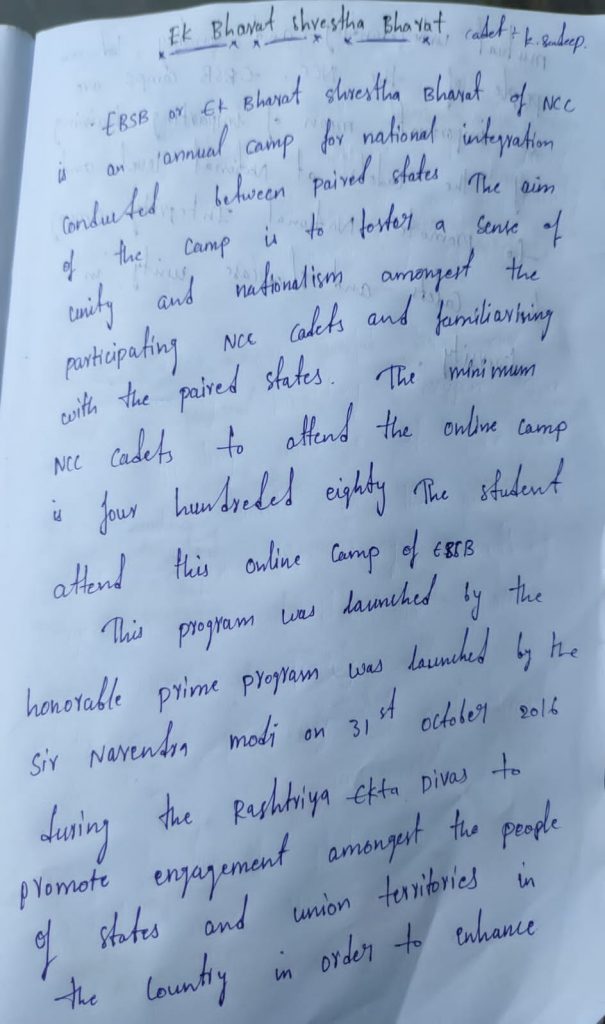 Ek Bharat shrestha Bharat, cadet: k. Sandeep.
EBSB or Ek Bharat shrestha Bharat of NCC
is an annual camp for national integration
conducted between paired states The aim
of the camp is to foster a sense of
unity and nationalism amongest the
participating NCC cadets and familiarising
with the paired states. The minimum
NCC cadets to attend the online camp
is four hundreded eighty The student
attend this online camp of EBSB
This program was launched by the
honorable prime program was launched by the
Sir Narendra modi on 31st october 2016
during the Rashtriya Ekta Divas to
promote engagement amongest the people
of states and union territories in
the country in order to enhance